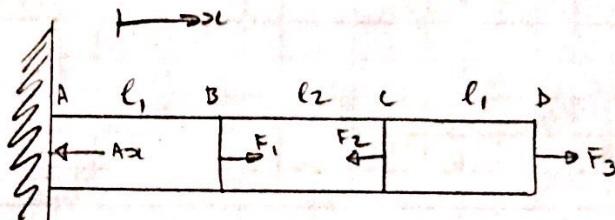 x
A l₁ B l₂ C l₁ D
Ax F₁ F₂ F₃